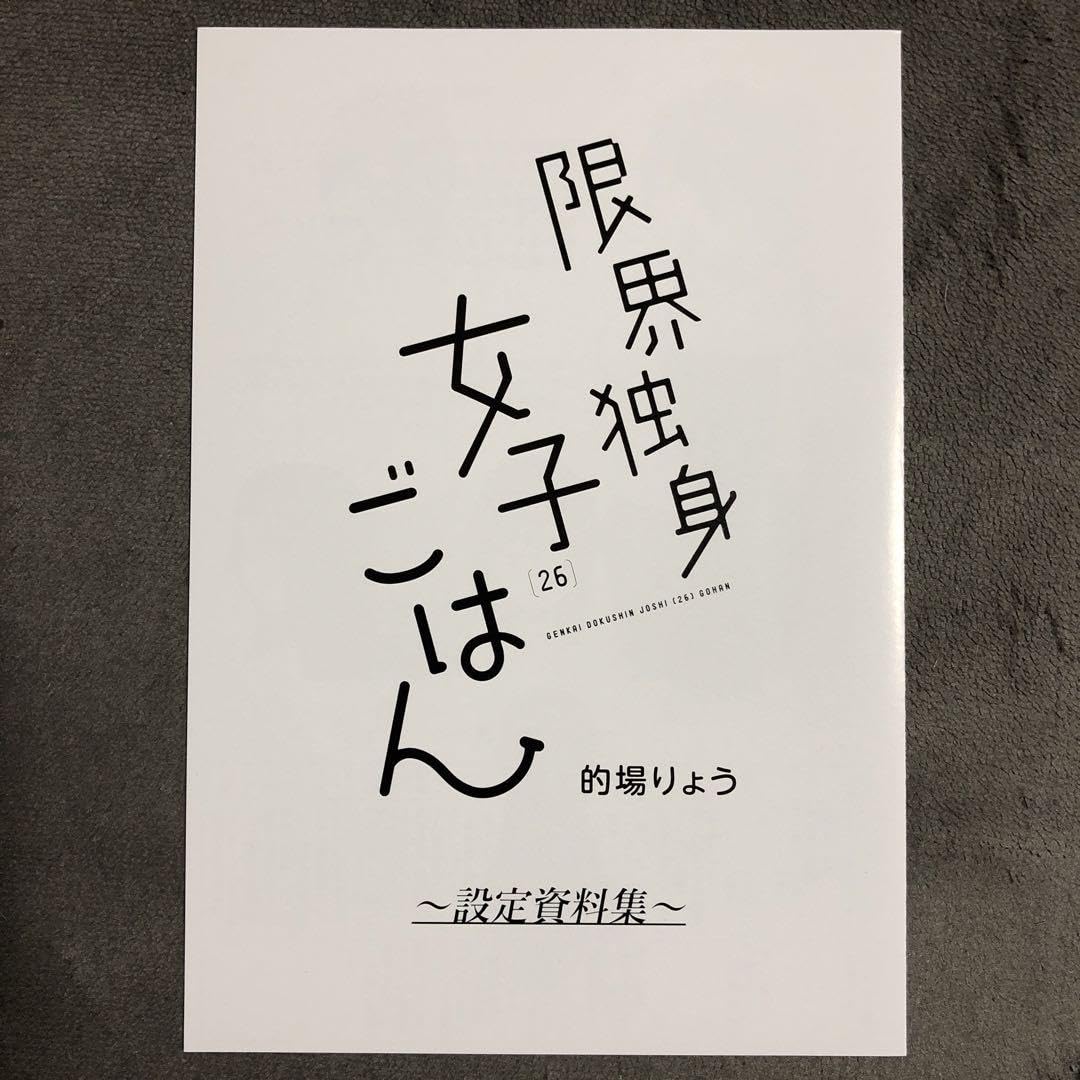 限界独身
女子
[26]
ごはん
GENKAI DOKUSHIN JOSHI (26) GOHAN
的場りょう
～設定資料集～